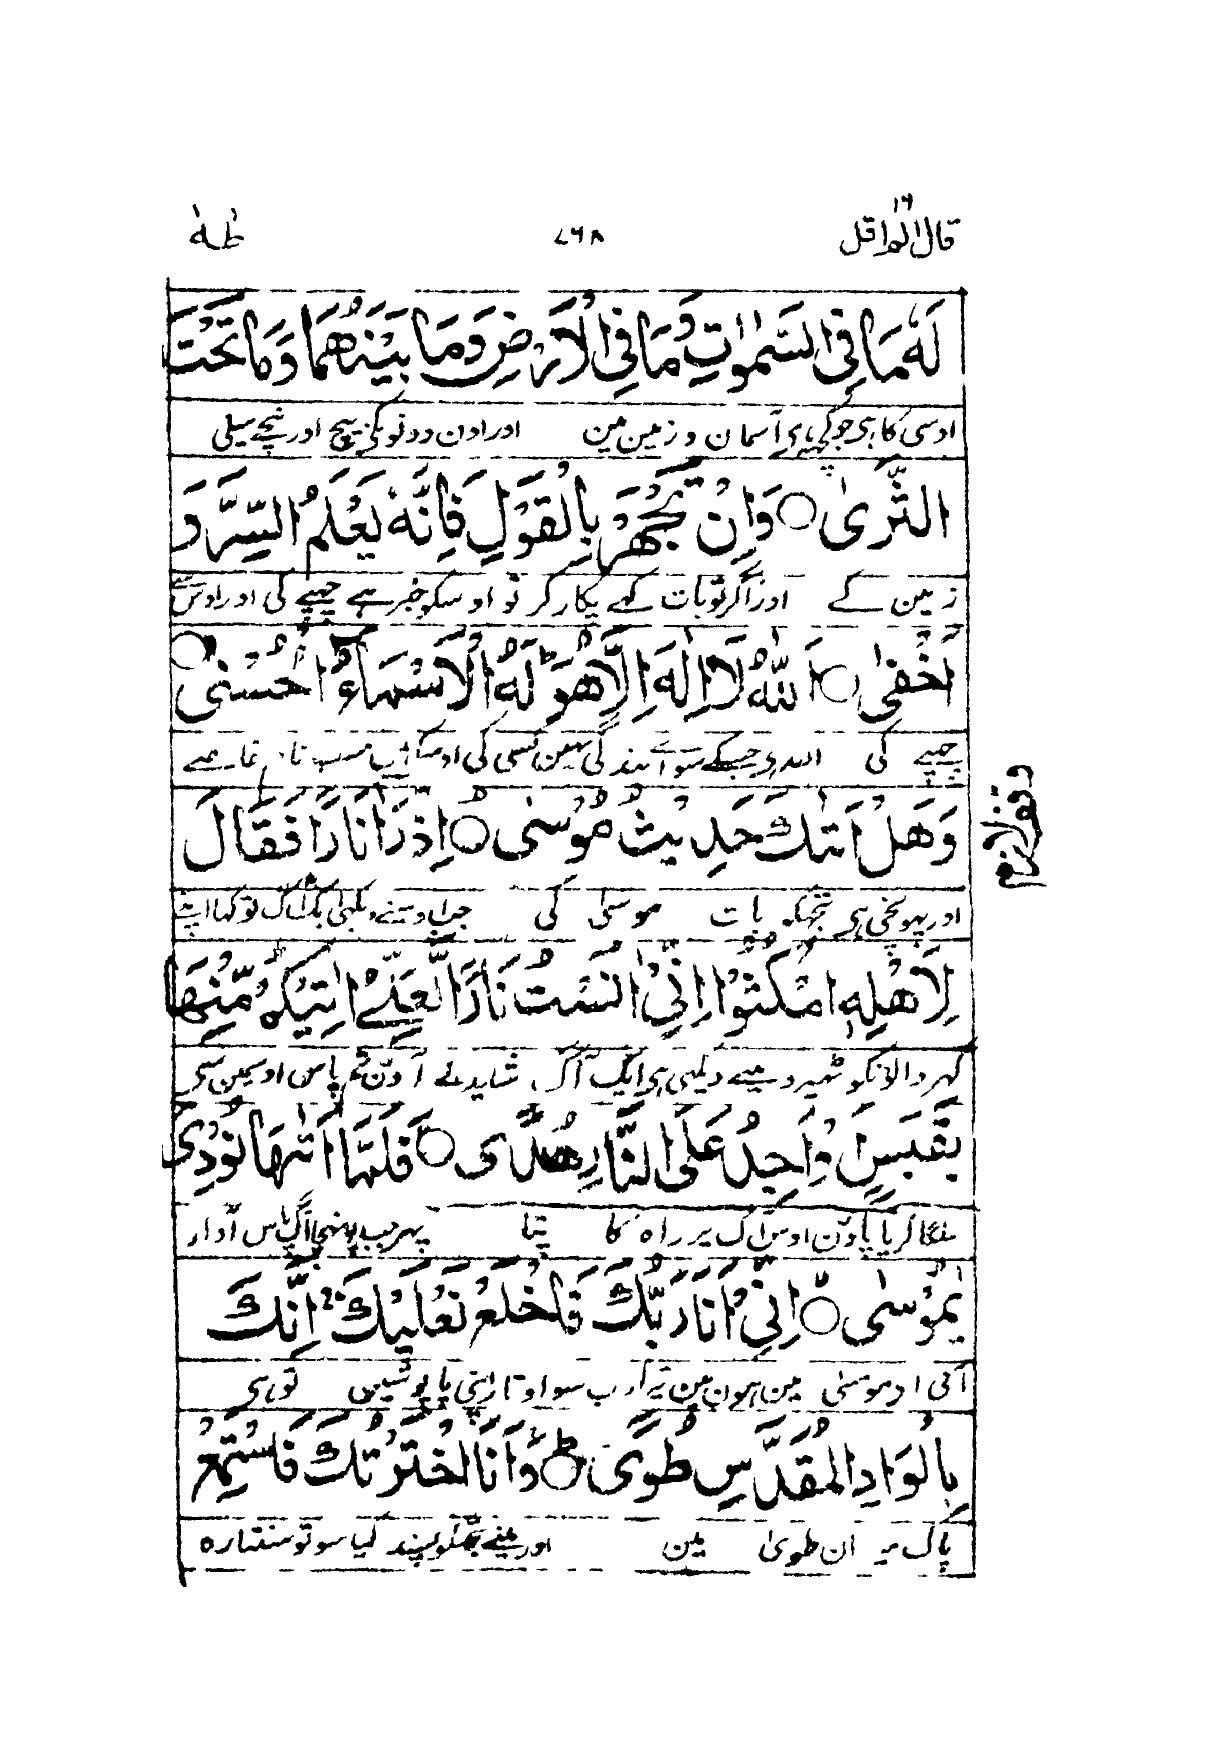 قال الم اقل ١٦
٧٦٨
طٰهٰ
لَهٗ مَا فِی السَّمٰوٰتِ وَمَا فِی الْاَرْضِ وَمَا بَیْنَهُمَا وَمَا تَحْتَ
اوسی کا ہی جو کچھ ہی آسمان و زمین مین اور اون دونو کی بیچ اور نیچے سیلی
الثَّرٰی ○ وَاِنْ تَجْهَرْ بِالْقَوْلِ فَاِنَّهٗ یَعْلَمُ السِّرَّ وَ
زمین کے اور اگر تو بات کہے پکار کر تو اوسکو خبر ہے چھپے کی اور اوس سے
اَخْفٰی ○ اَللّٰهُ لَا اِلٰهَ اِلَّا هُوَ ؕ لَهُ الْاَسْمَآءُ الْحُسْنٰی ○
چھپے کی اللہ ہی جسکے سوائے بندگی نہین کسی کی اوسکے ہین سب نام خاصے
وَهَلْ اَتٰىكَ حَدِیْثُ مُوْسٰی ○ اِذْ رَاٰ نَارًا فَقَالَ
وقف لازم
اور پہونچی ہی تجھکو بات موسیٰ کی جب اوسنے دیکھی ایک آگ تو کہا اپنے
لِاَهْلِهِ امْكُثُوْا اِنِّیْ اٰنَسْتُ نَارًا لَّعَلِّیْ اٰتِیْكُمْ مِّنْهَا
گھر والونکو ٹھیرو مینے دیکھی ہی ایک آگ شاید لے آؤن تم پاس اوسمین سی
بِقَبَسٍ اَوْ اَجِدُ عَلَی النَّارِ هُدًی ○ فَلَمَّا اَتٰىهَا نُوْدِیَ
سلگا کر یا پاؤن اوس آگ پر راہ کا پتا پھر جب پہنچا آگ پاس آواز
یٰمُوْسٰی ○ اِنِّیْ اَنَا رَبُّكَ فَاخْلَعْ نَعْلَیْكَ ۚ اِنَّكَ
آئی اے موسیٰ مین ہون مین تیرا رب سو اوتار اپنی پاپوشین تو ہی
بِالْوَادِ الْمُقَدَّسِ طُوًی ○ وَاَنَا اخْتَرْتُكَ فَاسْتَمِعْ
پاک میدان طویٰ مین اور مینے تجھکو پسند کیا سو تو سنتا رہ